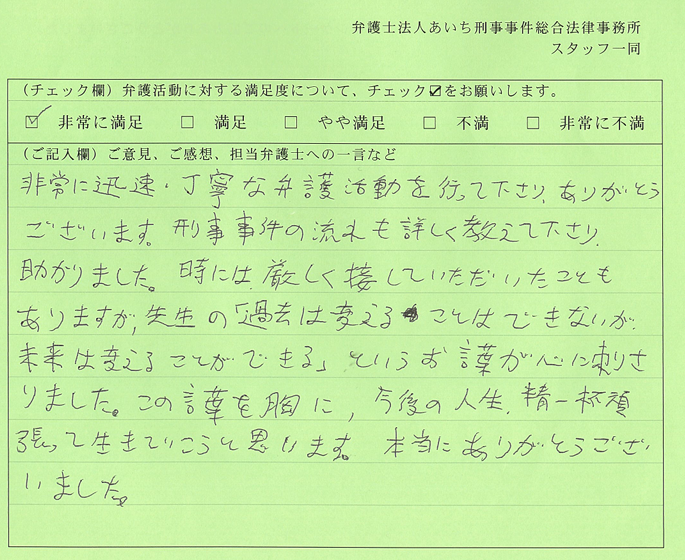 弁護士法人あいち刑事事件総合法律事務所
スタッフ一同
（チェック欄）弁護活動に対する満足度について、チェック☑をお願いします。
☑ 非常に満足 □ 満足 □ やや満足 □ 不満 □ 非常に不満
（ご記入欄）ご意見、ご感想、担当弁護士への一言など
非常に迅速・丁寧な弁護活動を行って下さり、ありがとう
ございます。刑事事件の流れも詳しく教えて下さり、
助かりました。時には、厳しく接していただいたことも
ありますが、先生の「過去は変えることはできないが、
未来は変えることができる」というお言葉が心に刺りさ
りました。この言葉を胸に、今後の人生、精一杯頑
張って生きていこうと思います。本当にありがとうござい
いました。